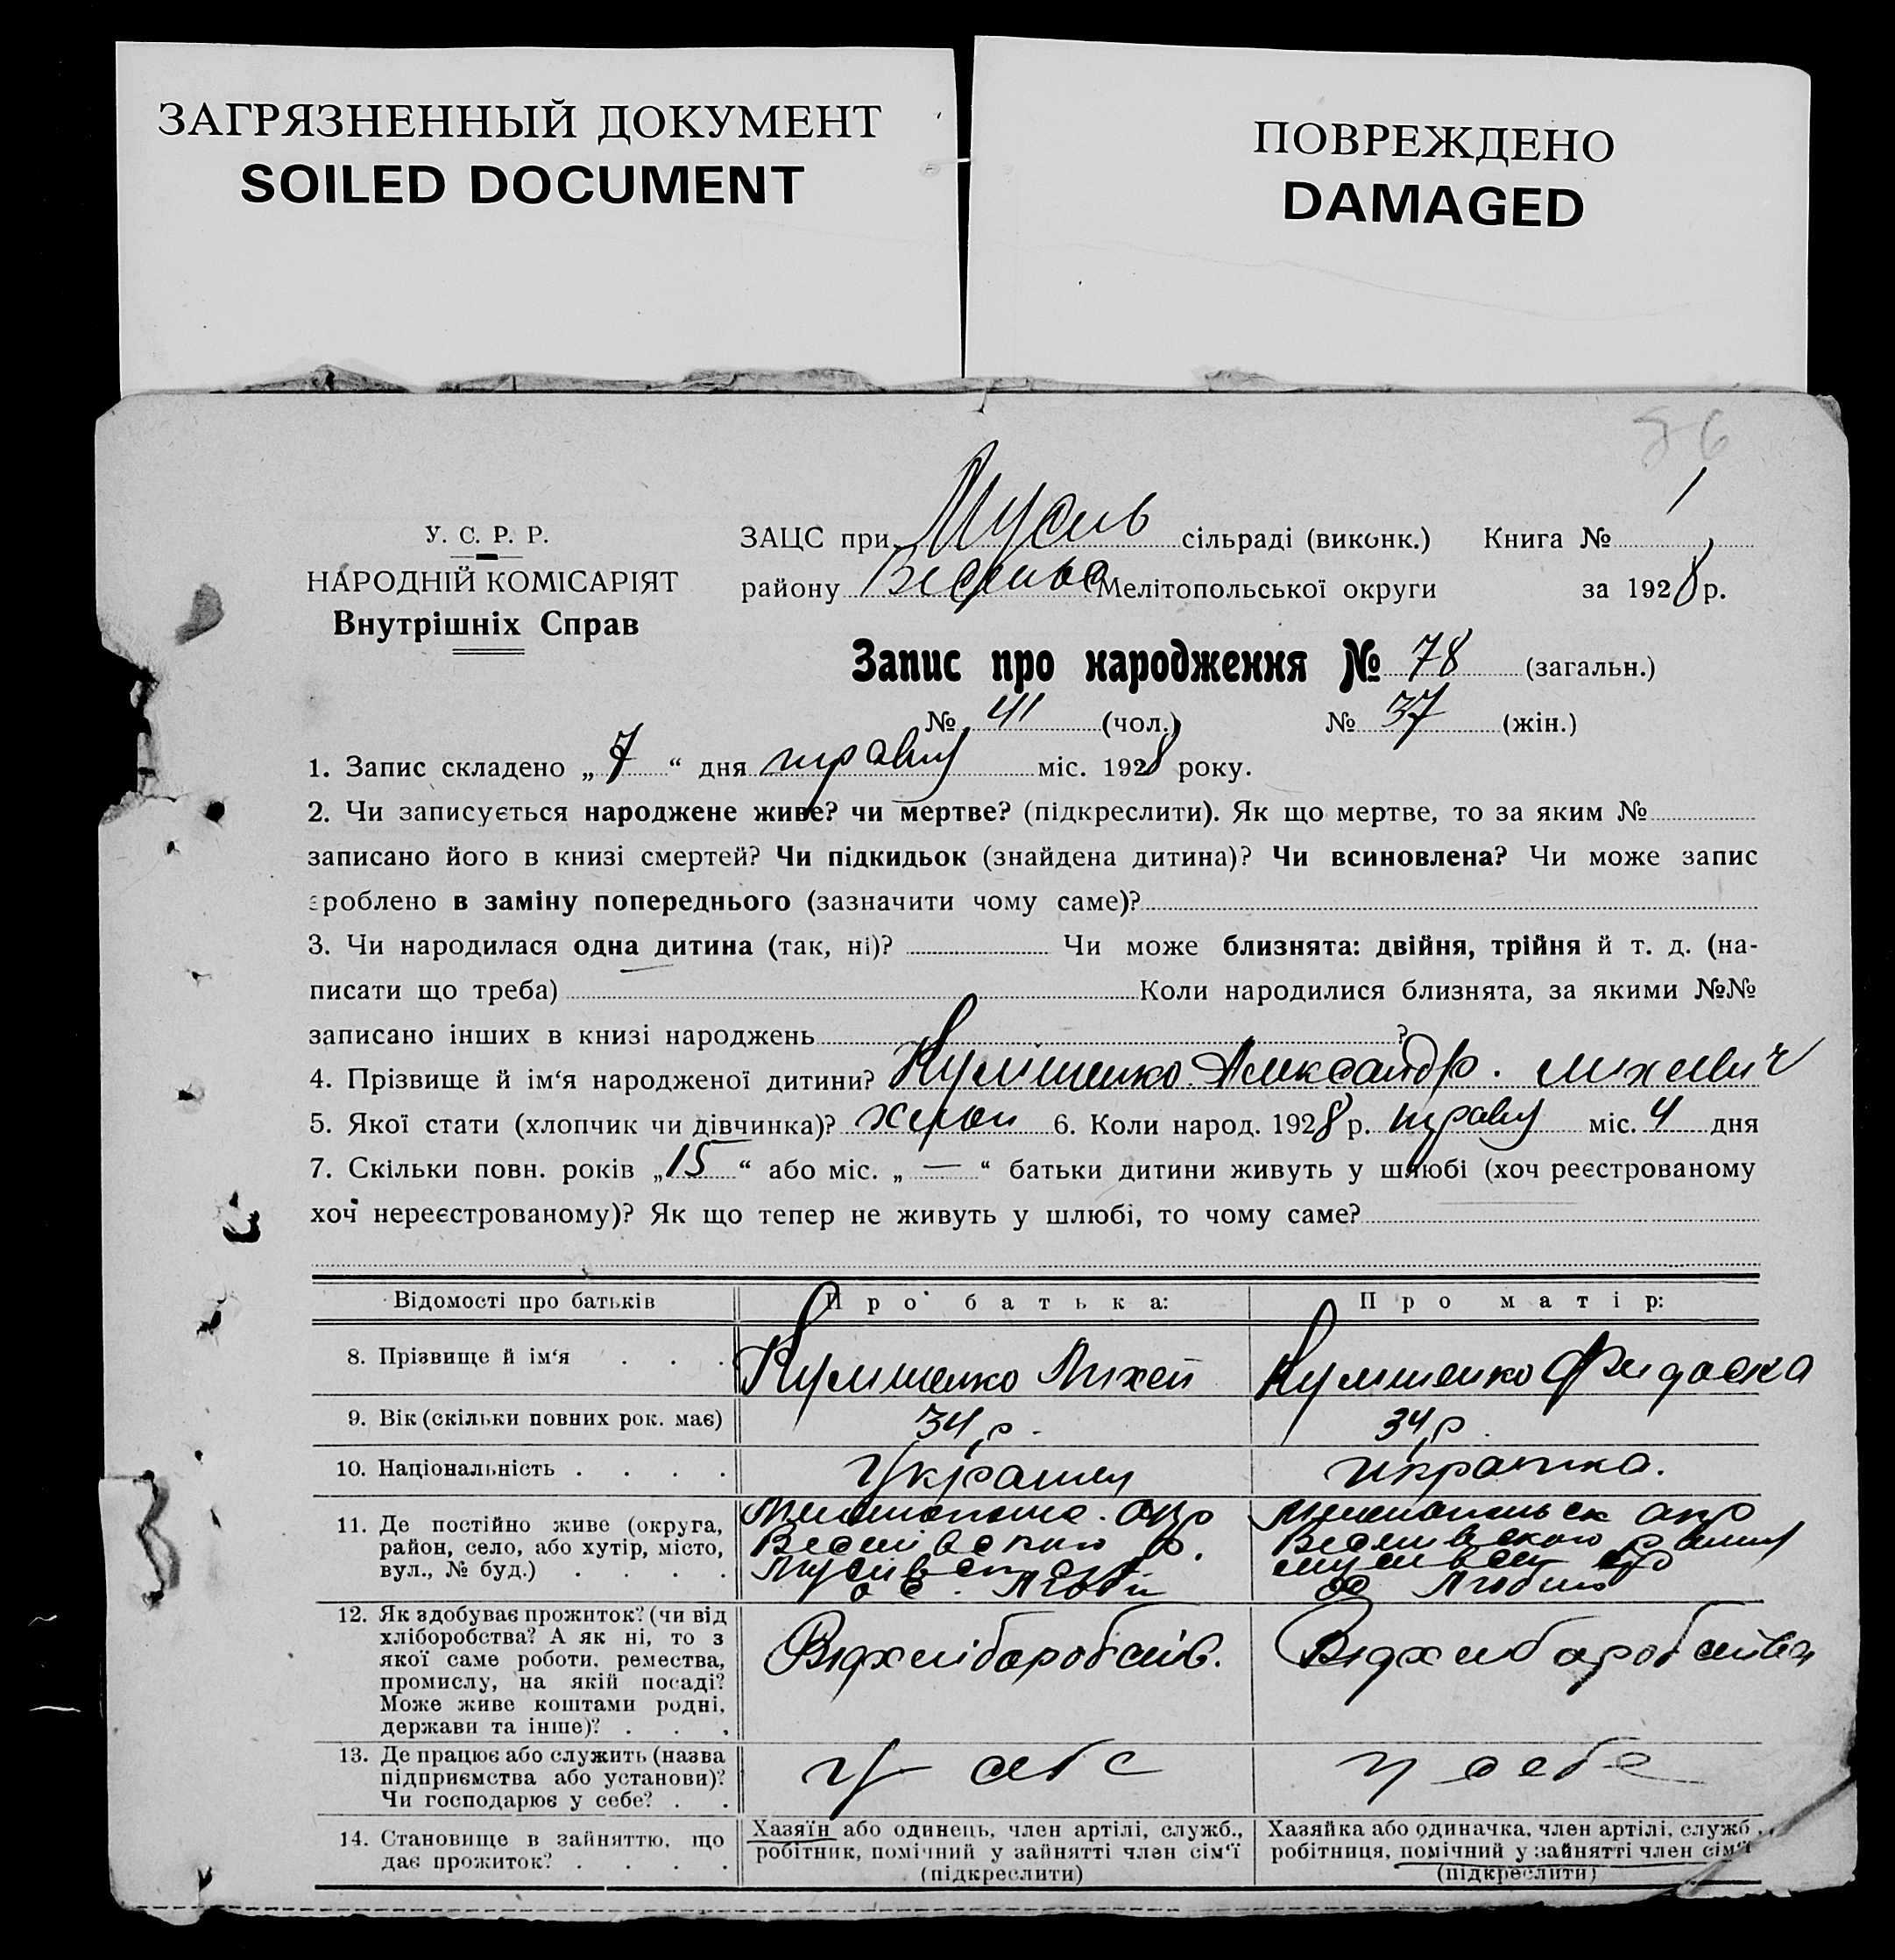 ЗАГРЯЗНЕННЫЙ ДОКУМЕНТ
SOILED DOCUMENT
ПОВРЕЖДЕНО
DAMAGED
У. С. Р. Р.
НАРОДНІЙ КОМІСАРІЯТ
Внутрішніх Справ
ЗАЦС при сільраді (виконк.) Книга № 1
району Мелітопольської округи за 1928 р.
Запис про народження № 78 (загальн.)
№ 41 (чол.) № 37 (жін.)
1. Запис складено „7“ дня травня міс. 1928 року.
2. Чи записується народжене живе? чи мертве? (підкреслити). Як що мертве, то за яким №
записано його в книзі смертей? Чи підкидьок (знайдена дитина)? Чи всиновлена? Чи може запис
зроблено в заміну попереднього (зазначити чому саме)?
3. Чи народилася одна дитина (так, ні)? Чи може близнята: двійня, трійня й т. д. (на-
писати що треба) Коли народилися близнята, за якими №№
записано інших в книзі народжень ?
4. Прізвище й ім‘я народженої дитини? Александр
5. Якої стати (хлопчик чи дівчинка)? 6. Коли народ. 1928 р. травня міс. 4 дня
7. Скільки повн. років „15“ або міс. „—“ батьки дитини живуть у шлюбі (хоч реєстрованому
хоч нереєстрованому)? Як що тепер не живуть у шлюбі, то чому саме?
Відомості про батьків Про батька: Про матір:
8. Прізвище й ім‘я . . . Михей
9. Вік (скільки повних рок. має) 34 р. 34 р.
10. Національність . . . . Українец українка.
11. Де постійно живе (округа,
район, село, або хутір, місто,
вул., № буд.) . . . .
12. Як здобуває прожиток? (чи від
хліборобства? А як ні, то з
якої саме роботи, ремества,
промислу, на якій посаді?
Може живе коштами родні,
держави та інше)? . . .
Відхліборобств. Відхліборобства
13. Де працює або служить (назва
підприємства або установи)?
Чи господарює у себе? . .
у себе у себе
14. Становище в зайняттю, що
дає прожиток? . . . .
Хазяїн або одинець, член артілі, служб.,
робітник, помічний у зайнятті член сім‘ї
(підкреслити)
Хазяйка або одиначка, член артілі, служб.,
робітниця, помічний у зайнятті член сім‘ї
(підкреслити)